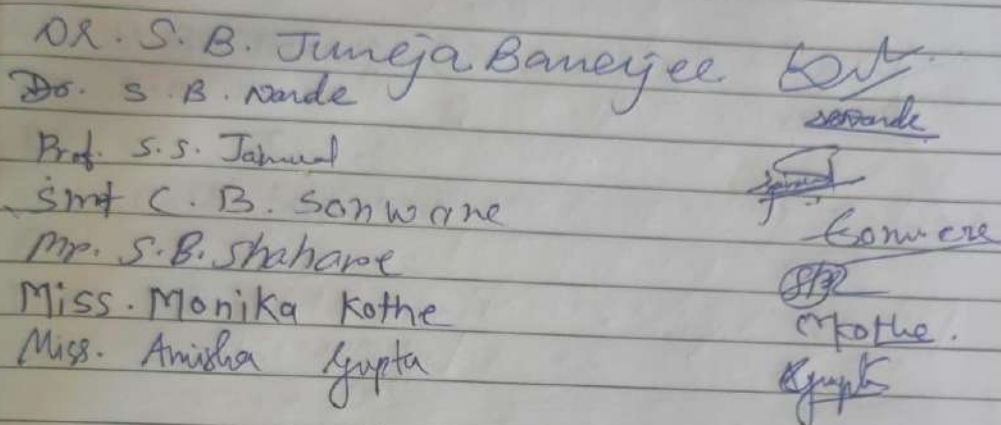 DR. S. B. Juneja Banerjee
Dr. S. B. Narde SBNarde
Prof. S. S.
Smt C. B. Sonwane Sonwane
Mr. S. B. Shahare SBS
Miss. Monika Kothe MKothe.
Miss. Amisha Gupta AGupta